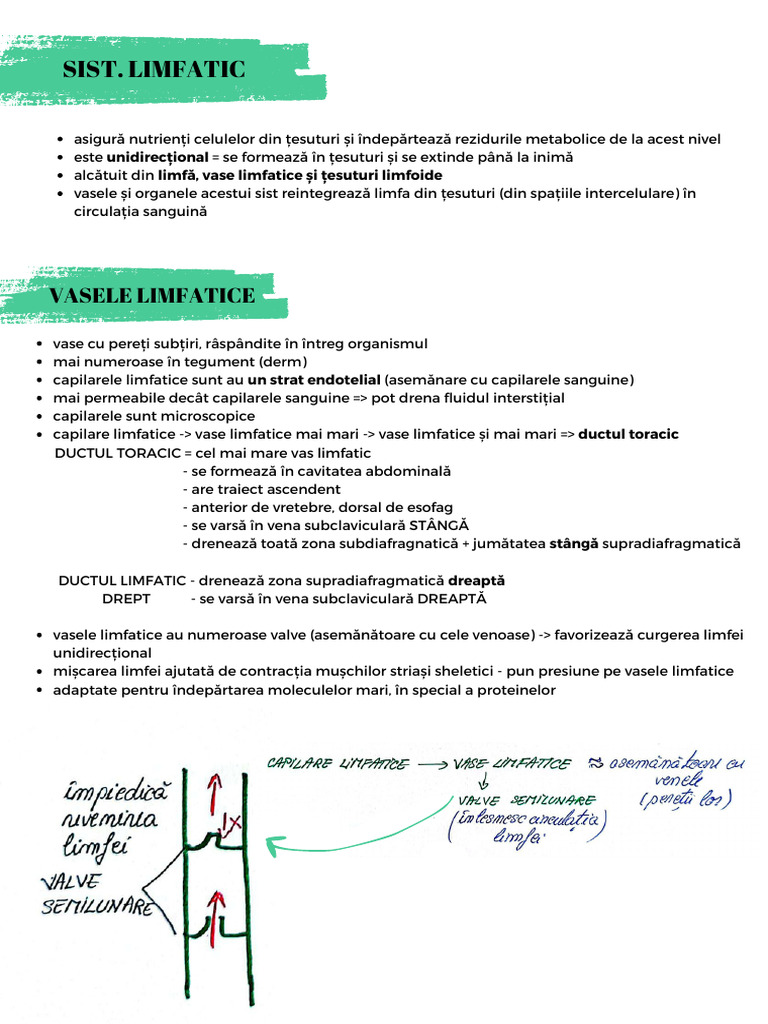 SIST. LIMFATIC
• asigură nutrienți celulelor din țesuturi și îndepărtează rezidurile metabolice de la acest nivel
• este unidirecțional = se formează în țesuturi și se extinde până la inimă
• alcătuit din limfă, vase limfatice și țesuturi limfoide
• vasele și organele acestui sist reintegrează limfa din țesuturi (din spațiile intercelulare) în
circulația sanguină
VASELE LIMFATICE
• vase cu pereți subțiri, râspândite în întreg organismul
• mai numeroase în tegument (derm)
• capilarele limfatice sunt au un strat endotelial (asemănare cu capilarele sanguine)
• mai permeabile decât capilarele sanguine => pot drena fluidul interstițial
• capilarele sunt microscopice
• capilare limfatice -> vase limfatice mai mari -> vase limfatice și mai mari => ductul toracic
DUCTUL TORACIC = cel mai mare vas limfatic
- se formează în cavitatea abdominală
- are traiect ascendent
- anterior de vretebre, dorsal de esofag
- se varsă în vena subclaviculară STÂNGĂ
- drenează toată zona subdiafragnatică + jumătatea stângă supradiafragmatică
DUCTUL LIMFATIC - drenează zona supradiafragmatică dreaptă
DREPT - se varsă în vena subclaviculară DREAPTĂ
• vasele limfatice au numeroase valve (asemănătoare cu cele venoase) -> favorizează curgerea limfei
unidirecțional
• mișcarea limfei ajutată de contracția mușchilor striași sheletici - pun presiune pe vasele limfatice
• adaptate pentru îndepărtarea moleculelor mari, în special a proteinelor
CAPILARE LIMFATICE → VASE LIMFATICE ≈ asemănătoare cu
venele
(pereții lor)
↓
VALVE SEMILUNARE
(înlesnesc circulația
limfei)
împiedică
revenirea
limfei
X
VALVE
SEMILUNARE